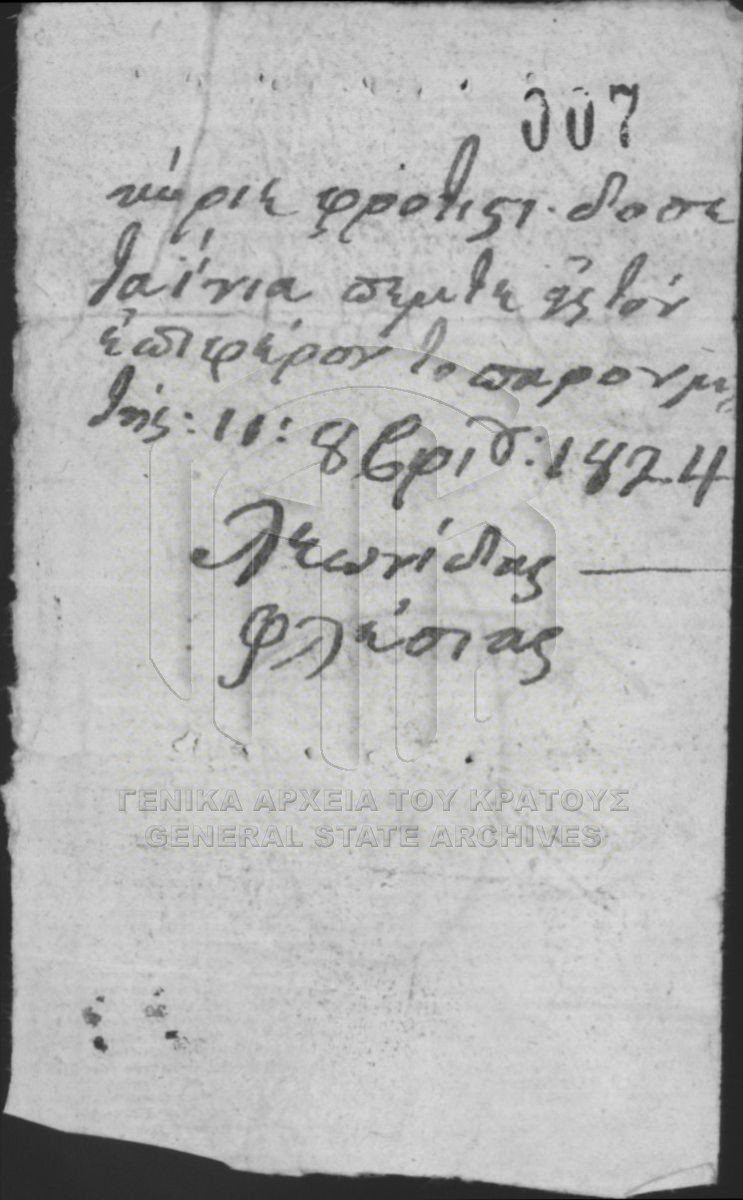 007
κύριε φροτιςι. δοσε
ταίνια πεμτε ης τον
επιφερον το παρον μ
της: 11: 8βρίου: 1824
Λεωνίδας
Φλέσιας
ΓΕΝΙΚΑ ΑΡΧΕΙΑ ΤΟΥ ΚΡΑΤΟΥΣ
GENERAL STATE ARCHIVES